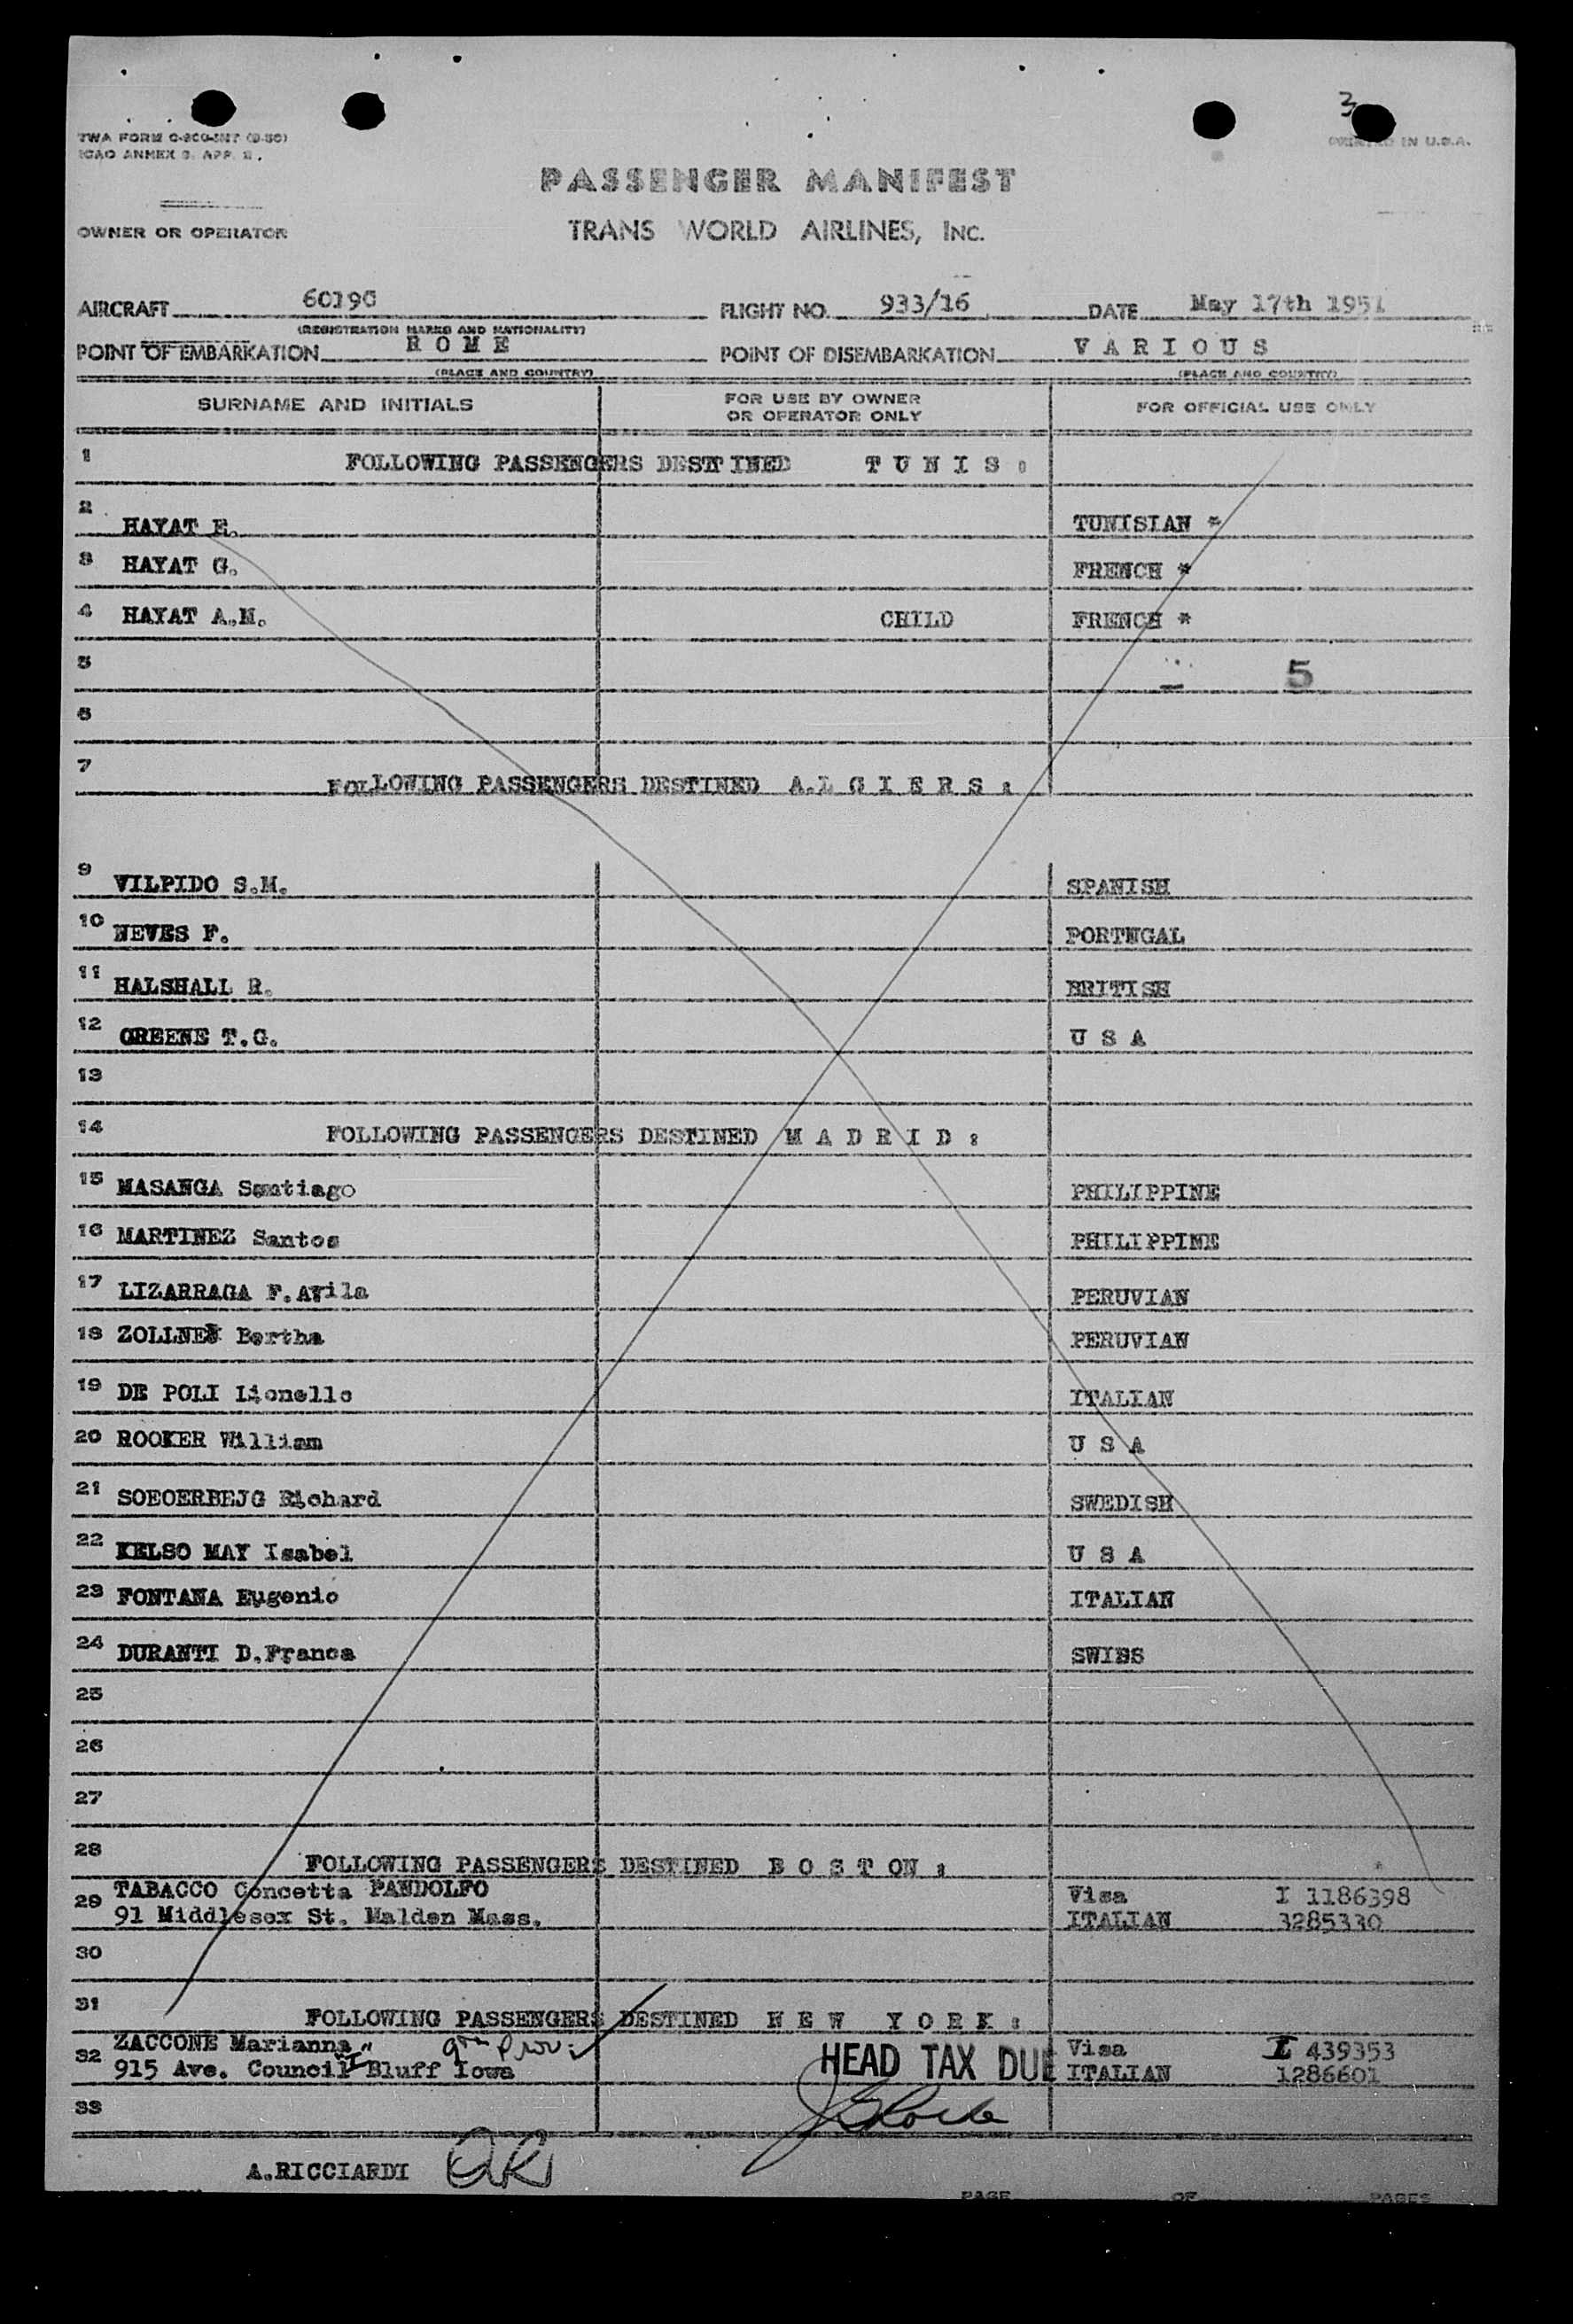 3
TWA FORM
ICAO ANNEX 9. APP.
PRINTED IN U.S.A.
PASSENGER MANIFEST
OWNER OR OPERATOR TRANS WORLD AIRLINES, INC.
AIRCRAFT 6019C FLIGHT NO. 933/16 DATE May 17th 1951
(REGISTRATION MARKS AND NATIONALITY)
POINT OF EMBARKATION R O M E POINT OF DISEMBARKATION V A R I O U S
(PLACE AND COUNTRY) (PLACE AND COUNTRY)
SURNAME AND INITIALS FOR USE BY OWNER OR OPERATOR ONLY FOR OFFICIAL USE ONLY
1 FOLLOWING PASSENGERS DESTINED T U N I S :
2 HAYAT E. TUNISIAN *
3 HAYAT G. FRENCH *
4 HAYAT A.M. CHILD FRENCH *
5 5
6
7 FOLLOWING PASSENGERS DESTINED A.L G I E R S :
9 VILPIDO S.M. SPANISH
10 NEVES F. PORTUGAL
11 HALSHALL R. BRITISH
12 GREENE T.G. U S A
13
14 FOLLOWING PASSENGERS DESTINED M A D R I D :
15 MASANGA Santiago PHILIPPINE
16 MARTINEZ Santos PHILIPPINE
17 LIZARRAGA F.Avila PERUVIAN
18 Bertha PERUVIAN
19 DE POLI Lionello ITALIAN
20 ROOKER William U S A
21 SOEOERBEJG Richard SWEDISH
22 KELSO MAY Isabel U S A
23 FONTANA Eugenio ITALIAN
24 DURANTI D.Franca SWISS
25
26
27
28 FOLLOWING PASSENGERS DESTINED B O S T ON :
29 TABACCO Concetta PANDOLFO Visa I 1186398
91 Middlesex St. Malden Mass. ITALIAN 3285330
30
31 FOLLOWING PASSENGERS DESTINED N E W Y O R K :
32 ZACCONE Marianna Visa I 439353
915 Ave. Council "I" Bluff Iowa HEAD TAX DUE ITALIAN 1286601
33
A.RICCIARDI OK
PAGE OF PAGES